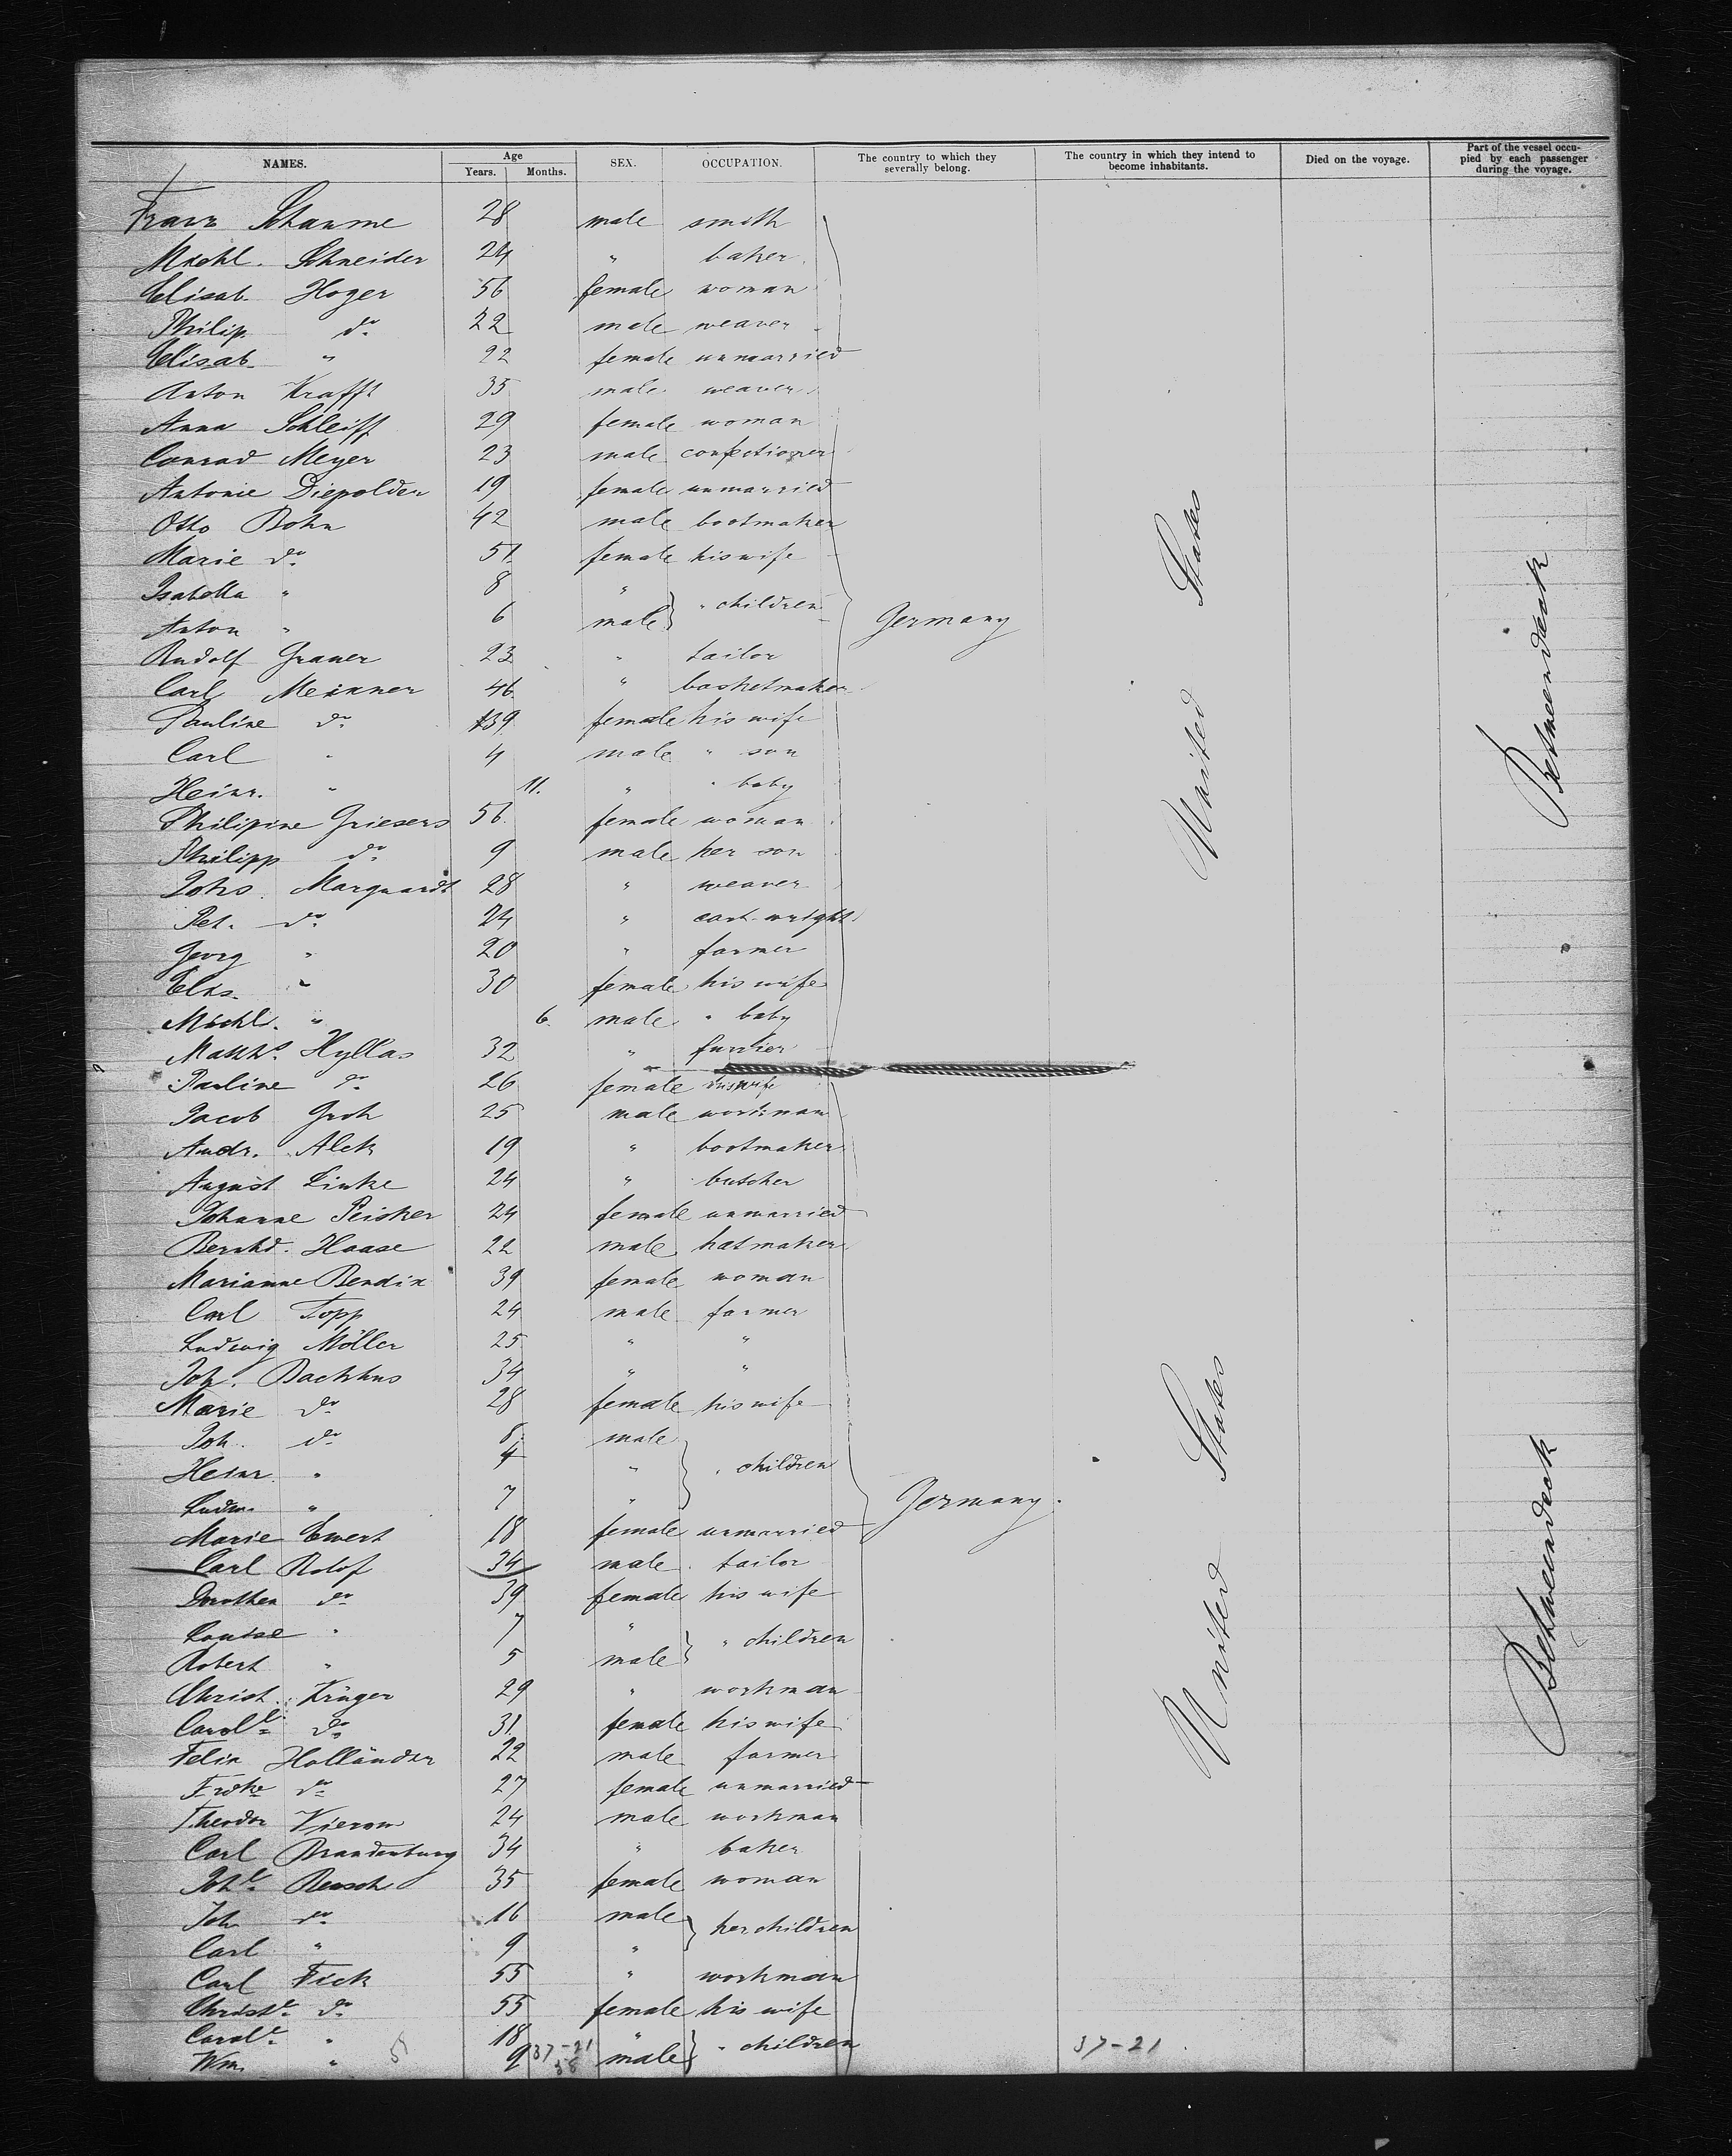 NAMES. Age Years. Months. SEX. OCCUPATION. The country to which they severally belong. The country in which they intend to become inhabitants. Died on the voyage. Part of the vessel occupied by each passenger during the voyage.
Franz Schaume 28 male smith
Michl. Schneider 24 " baker
Elisab. Hoger 56 female woman
Philip. do 22 male weaver
Elisab. " 22 female unmarried
Anton Krafft 35 male weaver
Anna Schleiff 29 female woman
Conrad Meyer 23 male confectioner
Antonie Diepolder 19 female unmarried
Otto Bohn 42 male bootmaker
Marie do 51 female his wife
Isabella " 8 " " children
Anton " 6 male
Germany
United States
Betweendeck
Rudolf Graner 23 " tailor
Carl Meixner 46 " basketmaker
Pauline do 39 female his wife
Carl " 4 male " son
Heinr. " 11. " " baby
Philipine Griesers 56. female woman
Philipp do 9 male her son
Johs. Marquardt 28 " weaver
Pet. do 24 " cart-wright
Georg " 20 " farmer
Elis. " 30 female his wife
Michl. " 6. male " baby
Matths. Hyllas 32 " furrier
Pauline do 26 female his wife
Jacob Groh 25 male workman
Andr. Alck 19 " bootmaker
August Linke 24 " butcher
Johanne Peisker 24 female unmarried
Bernhd. Haase 22 male hatmaker
Marianne Bendix 39 female woman
Carl Topp 24 male farmer
Ludwig Möller 25 " "
Joh. Backhus 34 " "
Marie do 28 female his wife
Joh. do 8. male
Heinr. " 4 " " children
Ludw. " 7 "
Germany.
United States
Betweendeck
Marie Ewert 18 female unmarried
Carl Rolof 34 male tailor
Dorothea do 39 female his wife
Louise " 7 " " children
Robert " 5 male
Christ. Krüger 29 " workman
Carole. do 31 female his wife
Felix Holländer 22 male farmer
Frdke do 27 female unmarried
Theodor Vierow 24 male workman
Carl Brandenburg 34 " baker
Johe. Rensch 35 female woman
Joh do 16 male her children
Carl " 9 "
Carl Fick 55 " workman
Christe. do 55 female his wife
Carole. " 18 " " children
Wm. " 9 male
5 37-21 38 37-21